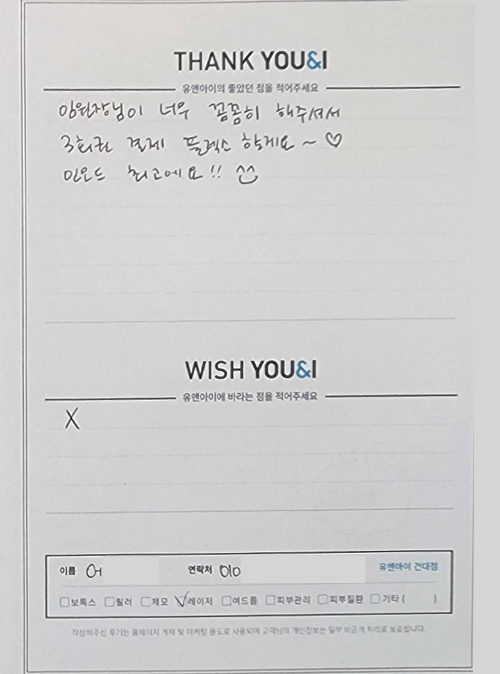 THANK YOU&I
유앤아이의 좋았던 점을 적어주세요
양원장님이 너무 꼼꼼히 해주셔서
3회권 결제 플렉스 할게요~♡
인모드 최고에요!!
WISH YOU&I
유앤아이에 바라는 점을 적어주세요
X
이름 어 연락처 010 유앤아이 건대점
□보톡스 □필러 □제모 ☑레이저 □여드름 □피부관리 □피부질환 □기타 ( )
작성해주신 후기는 홈페이지 게재 및 마케팅 용도로 사용되며 고객님의 개인정보는 일부 비공개 처리로 보호됩니다.